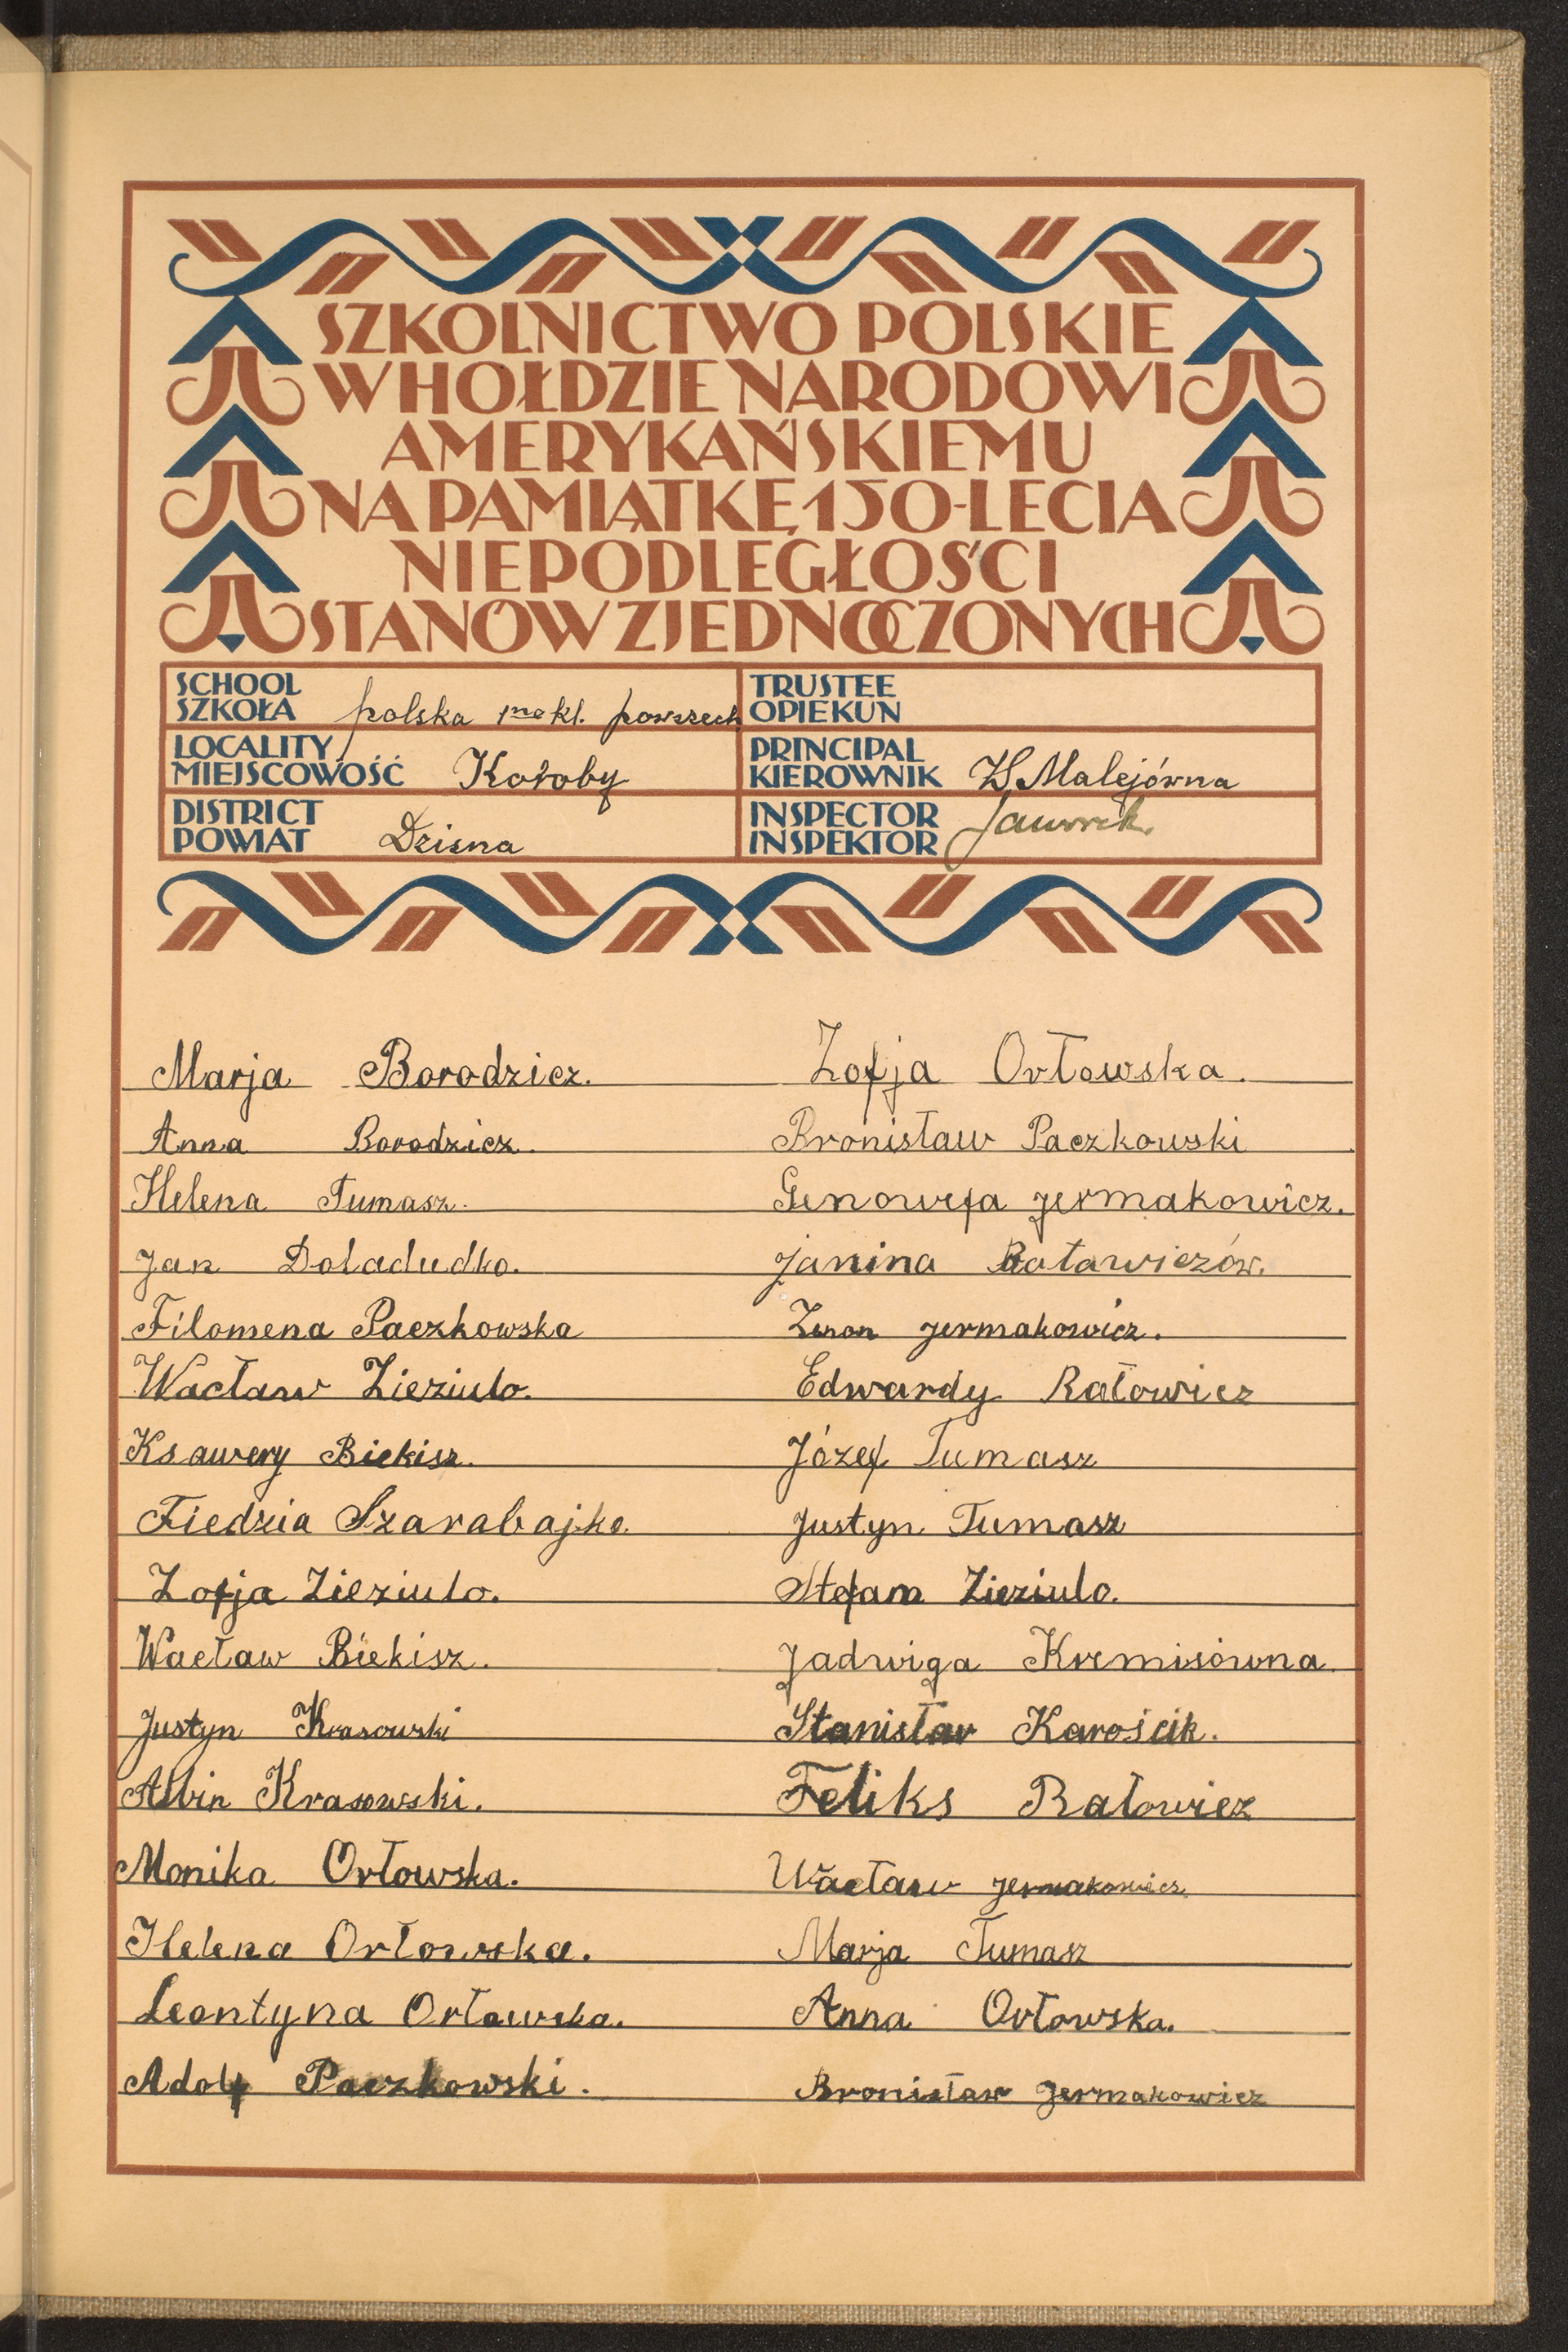 SZKOLNICTWO POLSKIE
W HOŁDZIE NARODOWI
AMERYKAŃSKIEMU
NA PAMIĄTKĘ 150-LECIA
NIEPODLEGŁOŚCI
STANÓW ZJEDNOCZONYCH
SCHOOL
SZKOŁA polska 1no kl. powszech
TRUSTEE
OPIEKUN
LOCALITY
MIEJSCOWOŚĆ Koroby
PRINCIPAL
KIEROWNIK W Malejówna
DISTRICT
POWIAT Dzisna
INSPECTOR
INSPEKTOR
Marja Borodzicz.
Anna Borodzicz.
Helena Tumasz.
Jan Doladudko.
Filomena Paczkowska
Wacław Zieziulo.
Ksawery Biekisz.
Fiedzia Szarabajko.
Zofja Zieziulo.
Wacław Biekisz.
Justyn Krasowski
Albin Krasowski.
Monika Orłowska.
Helena Orłowska.
Leontyna Orłowska.
Adolf Paczkowski.
Zofja Orłowska.
Bronisław Paczkowski
Genowefa Jermakowicz.
Janina
Zenon Jermakowicz.
Edwardy Ratowicz
Józef Tumasz
Justyn Tumasz
Stefan Zieziulo.
Jadwiga Kremisówna
Stanisław Karościk.
Feliks Ratowicz
Wacław Jermakowicz
Marja Tumasz
Anna Orłowska.
Bronisław Jermakowicz